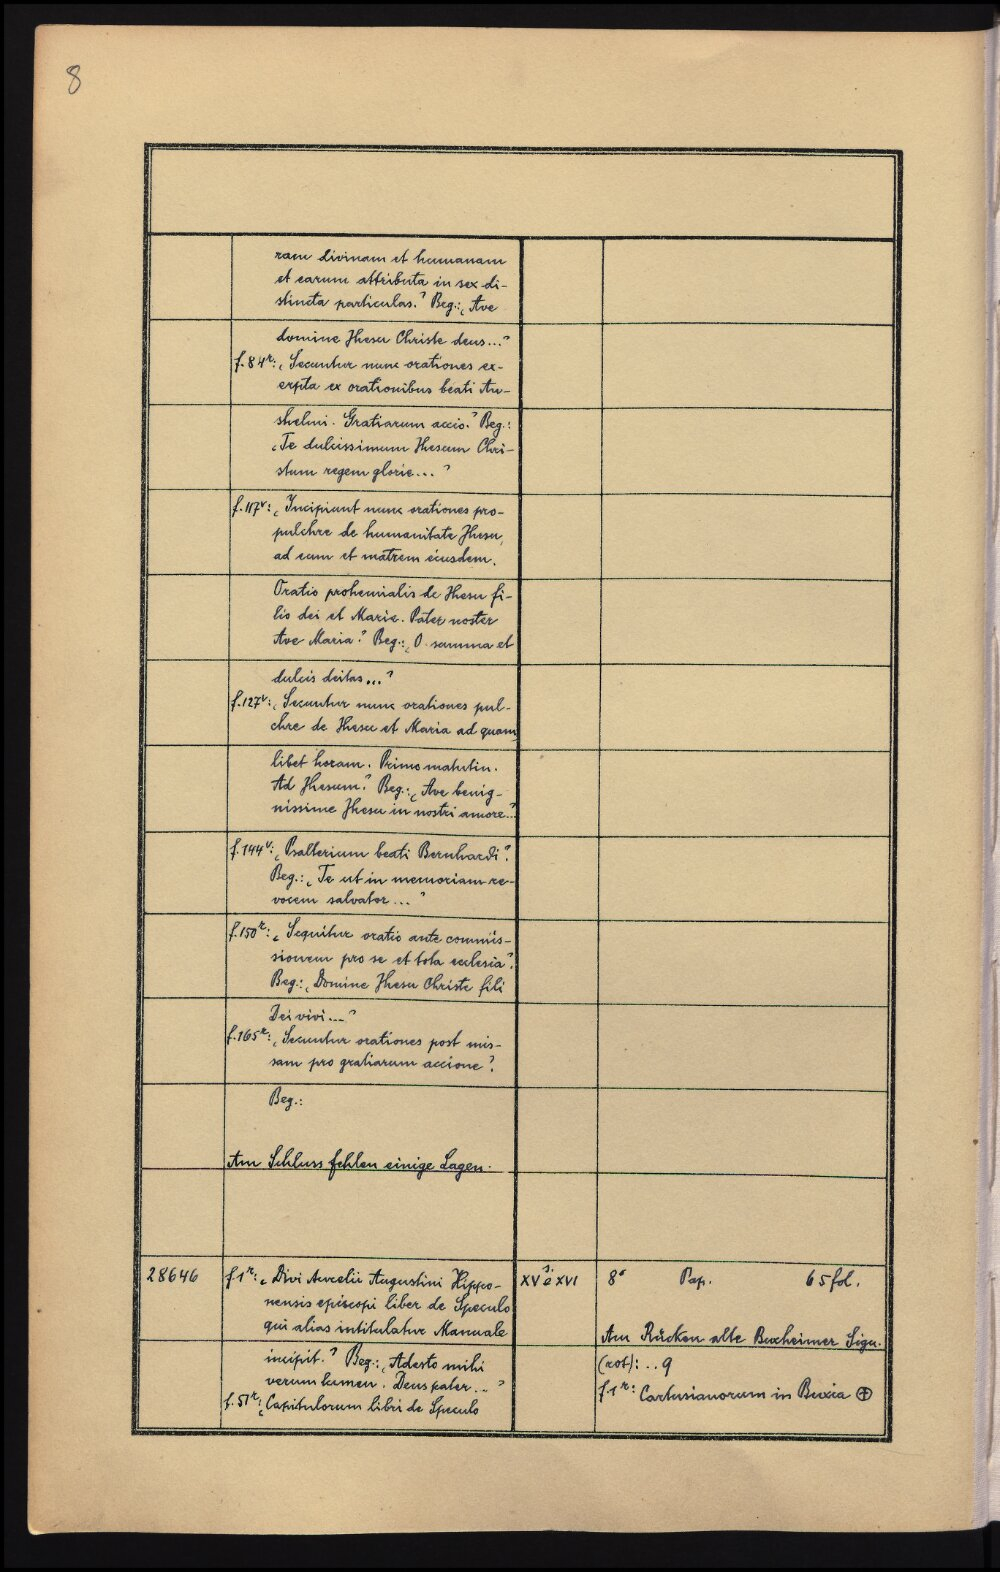 8
ram divinam et humanam
et earum attributa in sex di-
stincta particulas.‘ Beg.: ‚Ave
domine Jhesu Christe deus...‘
f. 84r: ‚Secuntur nunc orationes ex-
cerpta ex orationibus beati An-
shelmi. Gratiarum accio.‘ Beg.:
‚Te dulcissimum Jhesum Chri-
stum regem glorie...‘
f. 117v: ‚Incipiunt nunc orationes pro-
pulchre de humanitate Jhesu,
ad eum et matrem eiusdem.
Oratio prohemialis de Jhesu fi-
lio dei et Marie. Pater noster
Ave Maria.‘ Beg.: ‚O summa et
dulcis deitas...‘
f. 127v: ‚Secuntur nunc orationes pul-
chre de Jhesu et Maria ad quam
libet horam. Primo matutin.
Ad Jhesum.‘ Beg.: ‚Ave benig-
nissime Jhesu in nostri amore...‘
f. 144v: ‚Psalterium beati Bernhardi‘.
Beg.: ‚Te ut in memoriam re-
vocem salvator...‘
f. 150r: ‚Sequitur oratio ante commis-
sionem pro se et tota ecclesia‘.
Beg.: ‚Domine Jhesu Christe fili
Dei vivi...‘
f. 165r: ‚Secuntur orationes post mis-
sam pro gratiarum accione‘.
Beg.:
Am Schluss fehlen einige Lagen.
28646 f. 1r: ‚Divi Aurelii Augustini Hippo- XV s. e XVI 8° Pap. 65 fol.
nensis episcopi liber de Speculo
qui alias intitulatur Manuale Am Rücken alte Buxheimer Sign.
incipit.‘ Beg.: ‚Adesto mihi (rot): ..9
verum lumen. Deus pater...‘ f. 1r: Cartusianorum in Buxia ⊕
f. 57r: ‚Capitulorum libri de Speculo